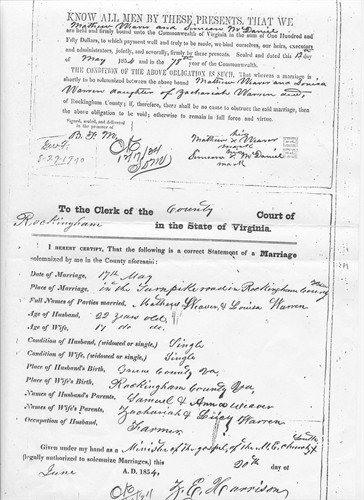 KNOW ALL MEN BY THESE PRESENTS, THAT WE
Matthew Weaver and Simeon McDaniel
are held and firmly bound unto the Commonwealth of Virginia in the sum of One Hundred and
Fifty Dollars, to which payment well and truly to be made, we bind ourselves, our heirs, executors
and administrators, jointly, and severally, firmly by these presents. Sealed and dated this 13th
of May 1854 and in the 78th year of the Commonwealth.
THE CONDITION OF THE ABOVE OBLIGATION IS SUCH, That whereas a marriage is
shortly to be solemnized between the above bound Matthew Weaver and Louisa
Warren daughter of Zachariah Warren decd,
of Rockingham County; if, therefore, there shall be no cause to obstruct the said marriage, then
the above obligation to be void; otherwise to remain in full force and virtue.
Signed, sealed, and delivered
in the presence of
his
Matthew x Weaver
mark
Simeon x McDaniel
mark
To the Clerk of the County Court of
Rockingham in the State of Virginia.
I HEREBY CERTIFY, That the following is a correct Statement of a Marriage
solemnized by me in the County aforesaid:
Date of Marriage, 17th May
Place of Marriage, in the Turnpike road in Rockingham County
Full Names of Parties married, Mathew Weaver, & Louisa Warren
Age of Husband, 22 years old
Age of Wife, 17 do do.
Condition of Husband, (widowed or single,) Single
Condition of Wife, (widowed or single,) Single
Place of Husband's Birth, Green County Va,
Place of Wife's Birth, Rockingham County Va,
Names of Husband's Parents, Samuel & Ann Weaver
Names of Wife's Parents, Zachariah & Warren
Occupation of Husband, Farmer
Given under my hand as Minister of the gospel, of the M.E. Church South
(legally authorized to solemnize Marriages,) this 20th day of
June A.D. 1854.
Harrison